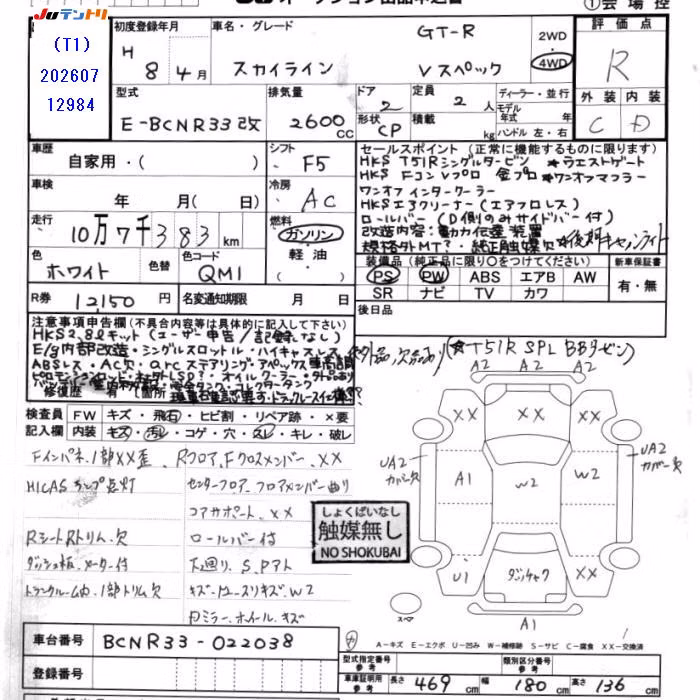 JUテントリ
①会場控
(T1)
202607
12984
初度登録年月
H 8年 4月
車名・グレード
GT-R
スカイライン
Vスペック
2WD
4WD
評価点
R
外装 内装
C D
型式
E-BCNR33改
排気量
2600 CC
ドア
2
形状
CP
定員
2 人
積載 kg
ディーラー・並行
モデル年式 年
ハンドル 左・右
車歴
自家用・( )
シフト
F5
車検
年 月( 日)
冷房
AC
走行
10万7千383 km
燃料
ガソリン
軽油
( )
色
ホワイト
色替
色コード
QM1
R券
12,150円
名変通知期限
月 日
セールスポイント (正常に機能するものに限ります)
HKS T51Rシングルタービン ★ウエストゲート
HKS FコンVプロ 金プロ ★ワンオフマフラー
ワンオフインタークーラー
HKSエアクリーナー(エアフロレス)
ロールバー(D側のみサイドバー付)
改造内容:動力伝達装置
規格外MT?・純正触媒欠 ★後期キャノンライト
装備品 (純正品に限り○をつけてください)
PS PW ABS エアB AW
SR ナビ TV カワ
新車保証書
有・無
後日品
注意事項申告欄(不具合内容等は具体的に記入して下さい)
HKS2.8ℓキット(ユーザー申告/記録なし)
E/g内部改造・シングルスロットル・ハイキャスレス
ABSレス・AC欠・arcステアリング・アペックス車高調
修復歴 有 (箇所
(★T51R SPL BBタービン)
検査員 FW キズ・飛石・ヒビ割・リペア跡・×要
記入欄 内装 キズ・汚レ・コゲ・穴・スレ・キレ・破レ
Fインパネ、1部XX歪、Rフロア、Fクロスメンバー、XX
HICASランプ点灯
センターフロア、フロアメンバー曲り
コアサポート、XX
RシートRトリム、欠
ロールバー付
ダッシュ板、メーター付
下廻り、S、Pアト
トランクルーム内、1部トリム欠
キズ・凹・スリキズ、W2
Dミラー、ホイール、キズ
しょくばいなし
触媒無し
NO SHOKUBAI
A2 A2 A2
XX XX
UA2
カバー欠
A1
W2
W2
UA2
カバー欠
U1
XX
スペア
A1
A-キズ E-エクボ U-凹み W-補修跡 S-サビ C-腐食 XX-交換済
車台番号
BCNR33-022038
登録番号
型式指定番号
参考
類別区分番号
参考
車庫証明用
参考
長さ 469 cm 幅 180 cm 高さ 136 cm